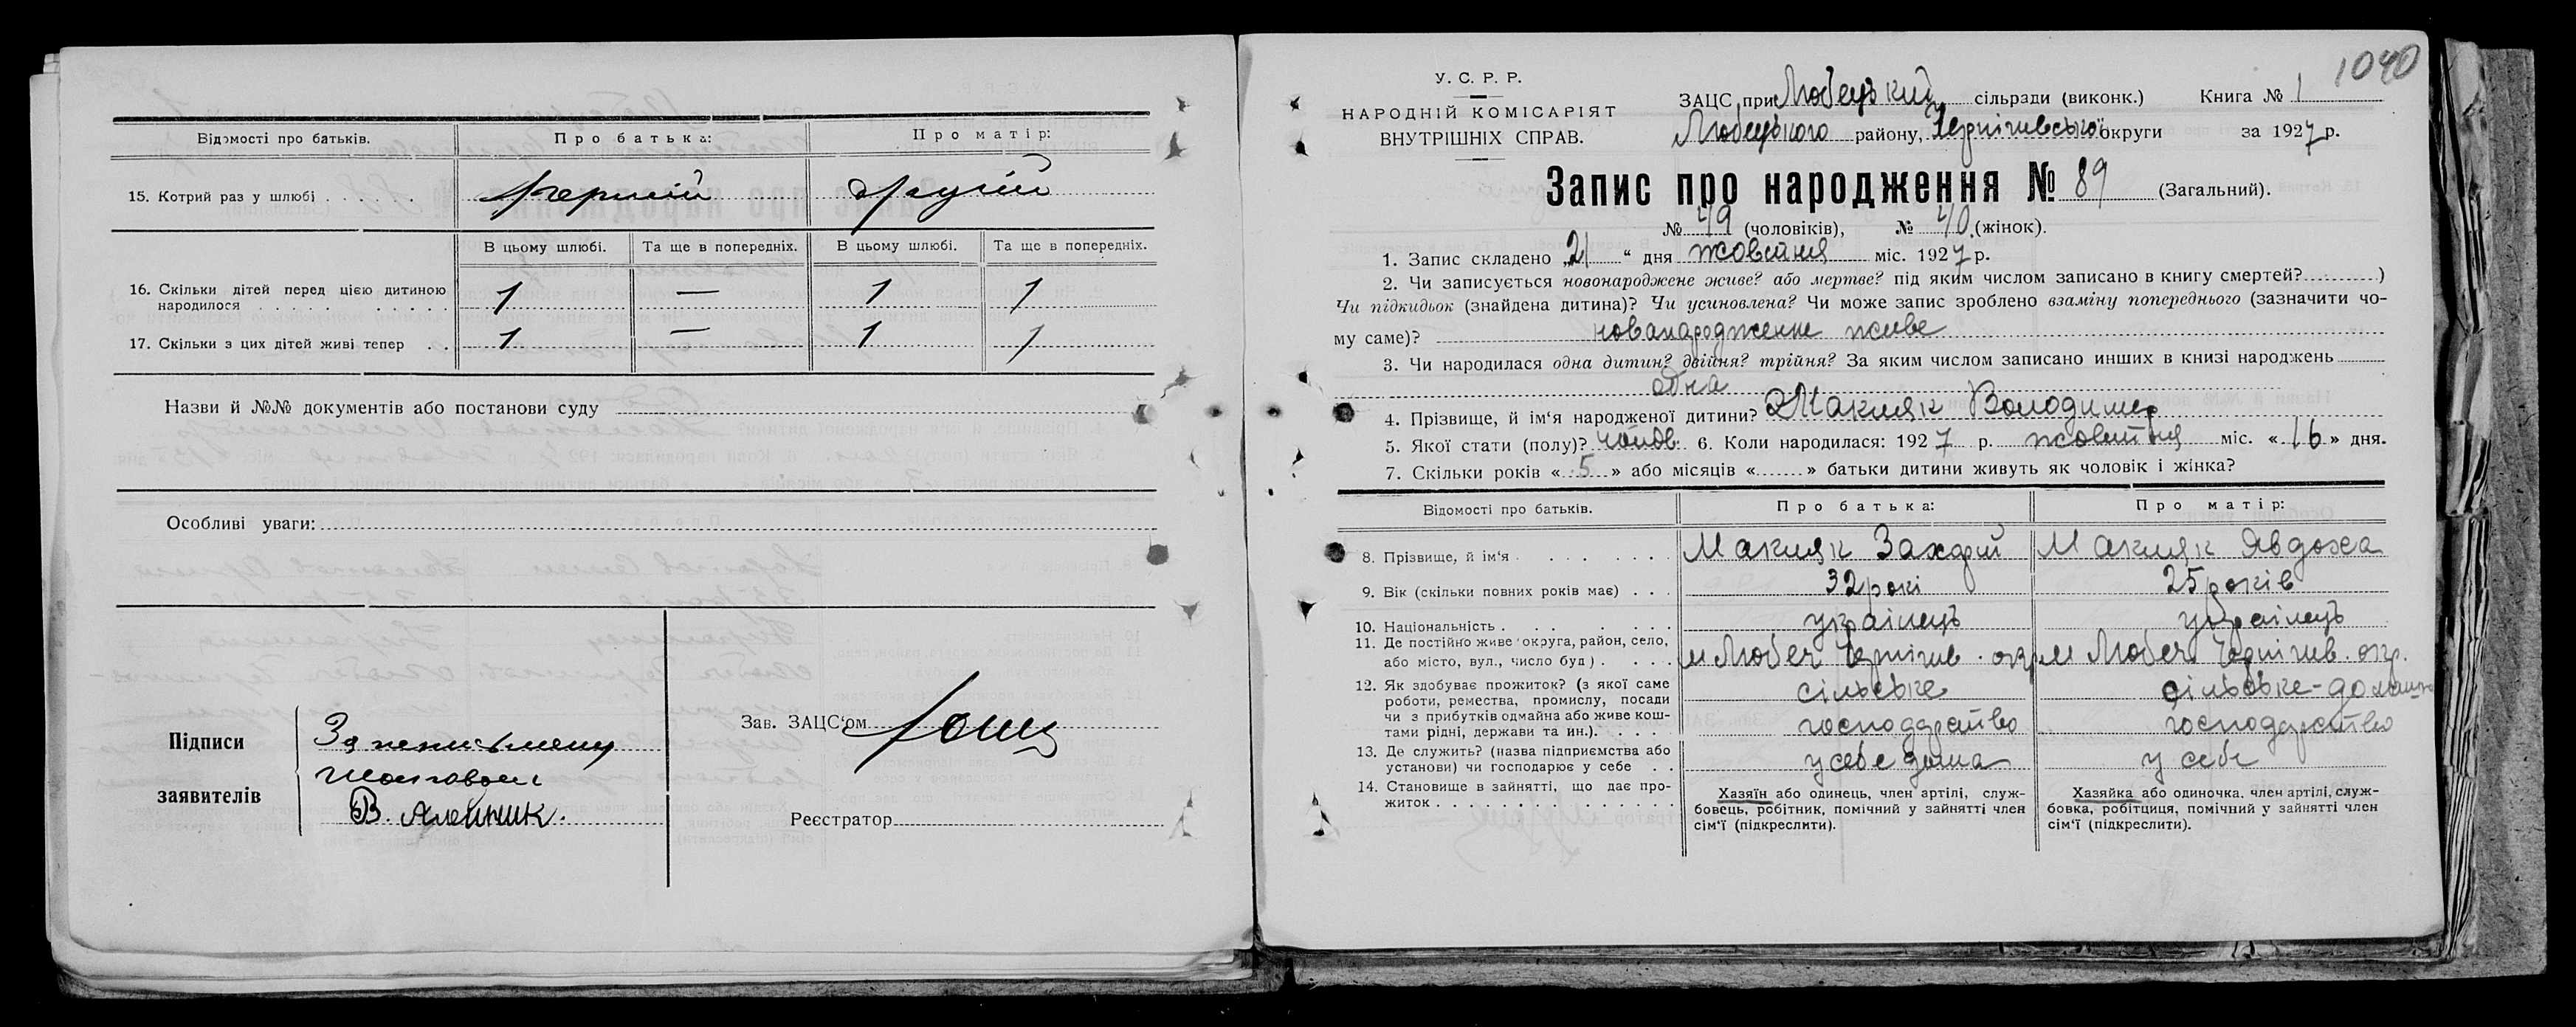 Відомості про батьків. Про батька: Про матір:
15. Котрий раз у шлюбі перший другий
В цьому шлюбі. Та ще в попередніх. В цьому шлюбі. Та ще в попередніх.
16. Скільки дітей перед цією дитиною
народилося 1 — 1 1
17. Скільки з цих дітей живі тепер 1 — 1 1
Назви й №№ документів або постанови суду
Особливі уваги:
Підписи
заявителів
В. Алейник.
Зав. ЗАЦС'ом
Реєстратор
1040
У. С. Р. Р.
НАРОДНІЙ КОМІСАРІЯТ
ВНУТРІШНІХ СПРАВ.
ЗАЦС при Любецькій сільради (виконк.) Книга № 1
Любецького району, Чернігивської округи за 1927 р.
Запис про народження № 89 (Загальний).
№ 49 (чоловіків), № 40 (жінок).
1. Запис складено „21“ дня жовтня міс. 1927 р.
2. Чи записується новонароджене живе? або мертве? під яким числом записано в книгу смертей? )
Чи підкидьок (знайдена дитина)? Чи усиновлена? Чи може запис зроблено взаміну попереднього (зазначити чо-
му саме)? нованароджение живе
3. Чи народилася одна дитин? двійня? трійня? За яким числом записано инших в книзі народжень
одна
4. Прізвище, й ім'я народженої дитини? Макияк Володимер
5. Якої стати (полу)? чолов. 6. Коли народилася: 1927 р. жовтня міс. «16» дня.
7. Скільки років «5» або місяців « » батьки дитини живуть як чоловік і жінка?
Відомості про батьків. Про батька: Про матір:
8. Прізвище, й ім'я Макияк Захарій Макияк Явдоха
9. Вік (скільки повних років має) 32 рокі 25 років
10. Національність українець українець
11. Де постійно живе округа, район, село,
або місто, вул., число буд) м Любеч Чернігив. окр м Любеч Чернігив. окр.
12. Як здобуває прожиток? (з якої саме
роботи, ремества, промислу, посади
чи з прибутків одмайна або живе кош-
тами рідні, держави та ин.). сільське господарство сільське-домашн господарство
13. Де служить? (назва підприємства або
установи) чи господарює у себе у себе дома у себе
14. Становище в зайнятті, що дає про-
житок
Хазяїн або одинець, член артілі, служ-
бовець, робітник, помічний у зайнятті член
сім'ї (підкреслити).
Хазяйка або одиночка, член артілі, служ-
бовка, робітниця, помічний у зайнятті член
сім'ї (підкреслити).